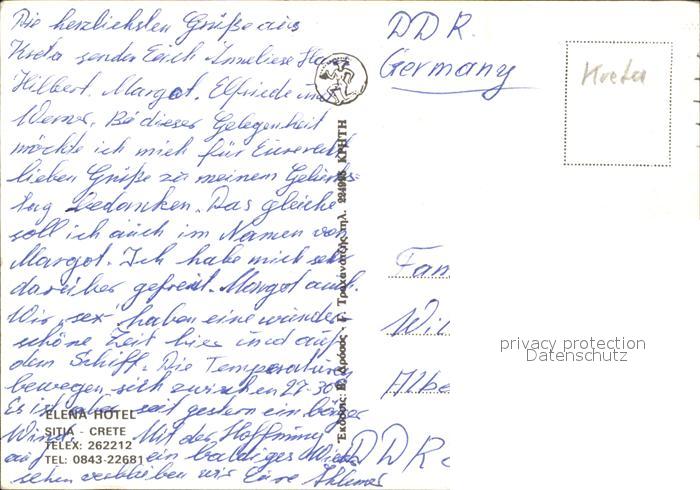 Die herzlichsten Grüße aus
Kreta senden Euch Anneliese
Hilbert, Margot, Elfriede und
Werner. Bei dieser Gelegenheit
möchte ich mich für Eure
lieben Grüße zu meinem Geburts-
tag bedanken. Das gleiche
soll ich auch im Namen von
Margot. Ich habe mich sehr
darüber gefreut. Margot auch.
Wir haben eine wunder-
schöne Zeit hier und auf
dem Schiff. Die Temperaturen
bewegen sich zwischen 27-30
Es ist aber seit gestern ein böiger
Wind. Mit der Hoffnung
auf ein baldiges
sehen verbleiben wir Eure
ELENA HOTEL
SITIA - CRETE
TELEX: 262212
TEL: 0843-22681
τηλ. ΚΡΗΤΗ
DDR.
Germany
Kreta
Fam
Wil
Albe
DDR
privacy protection
Datenschutz